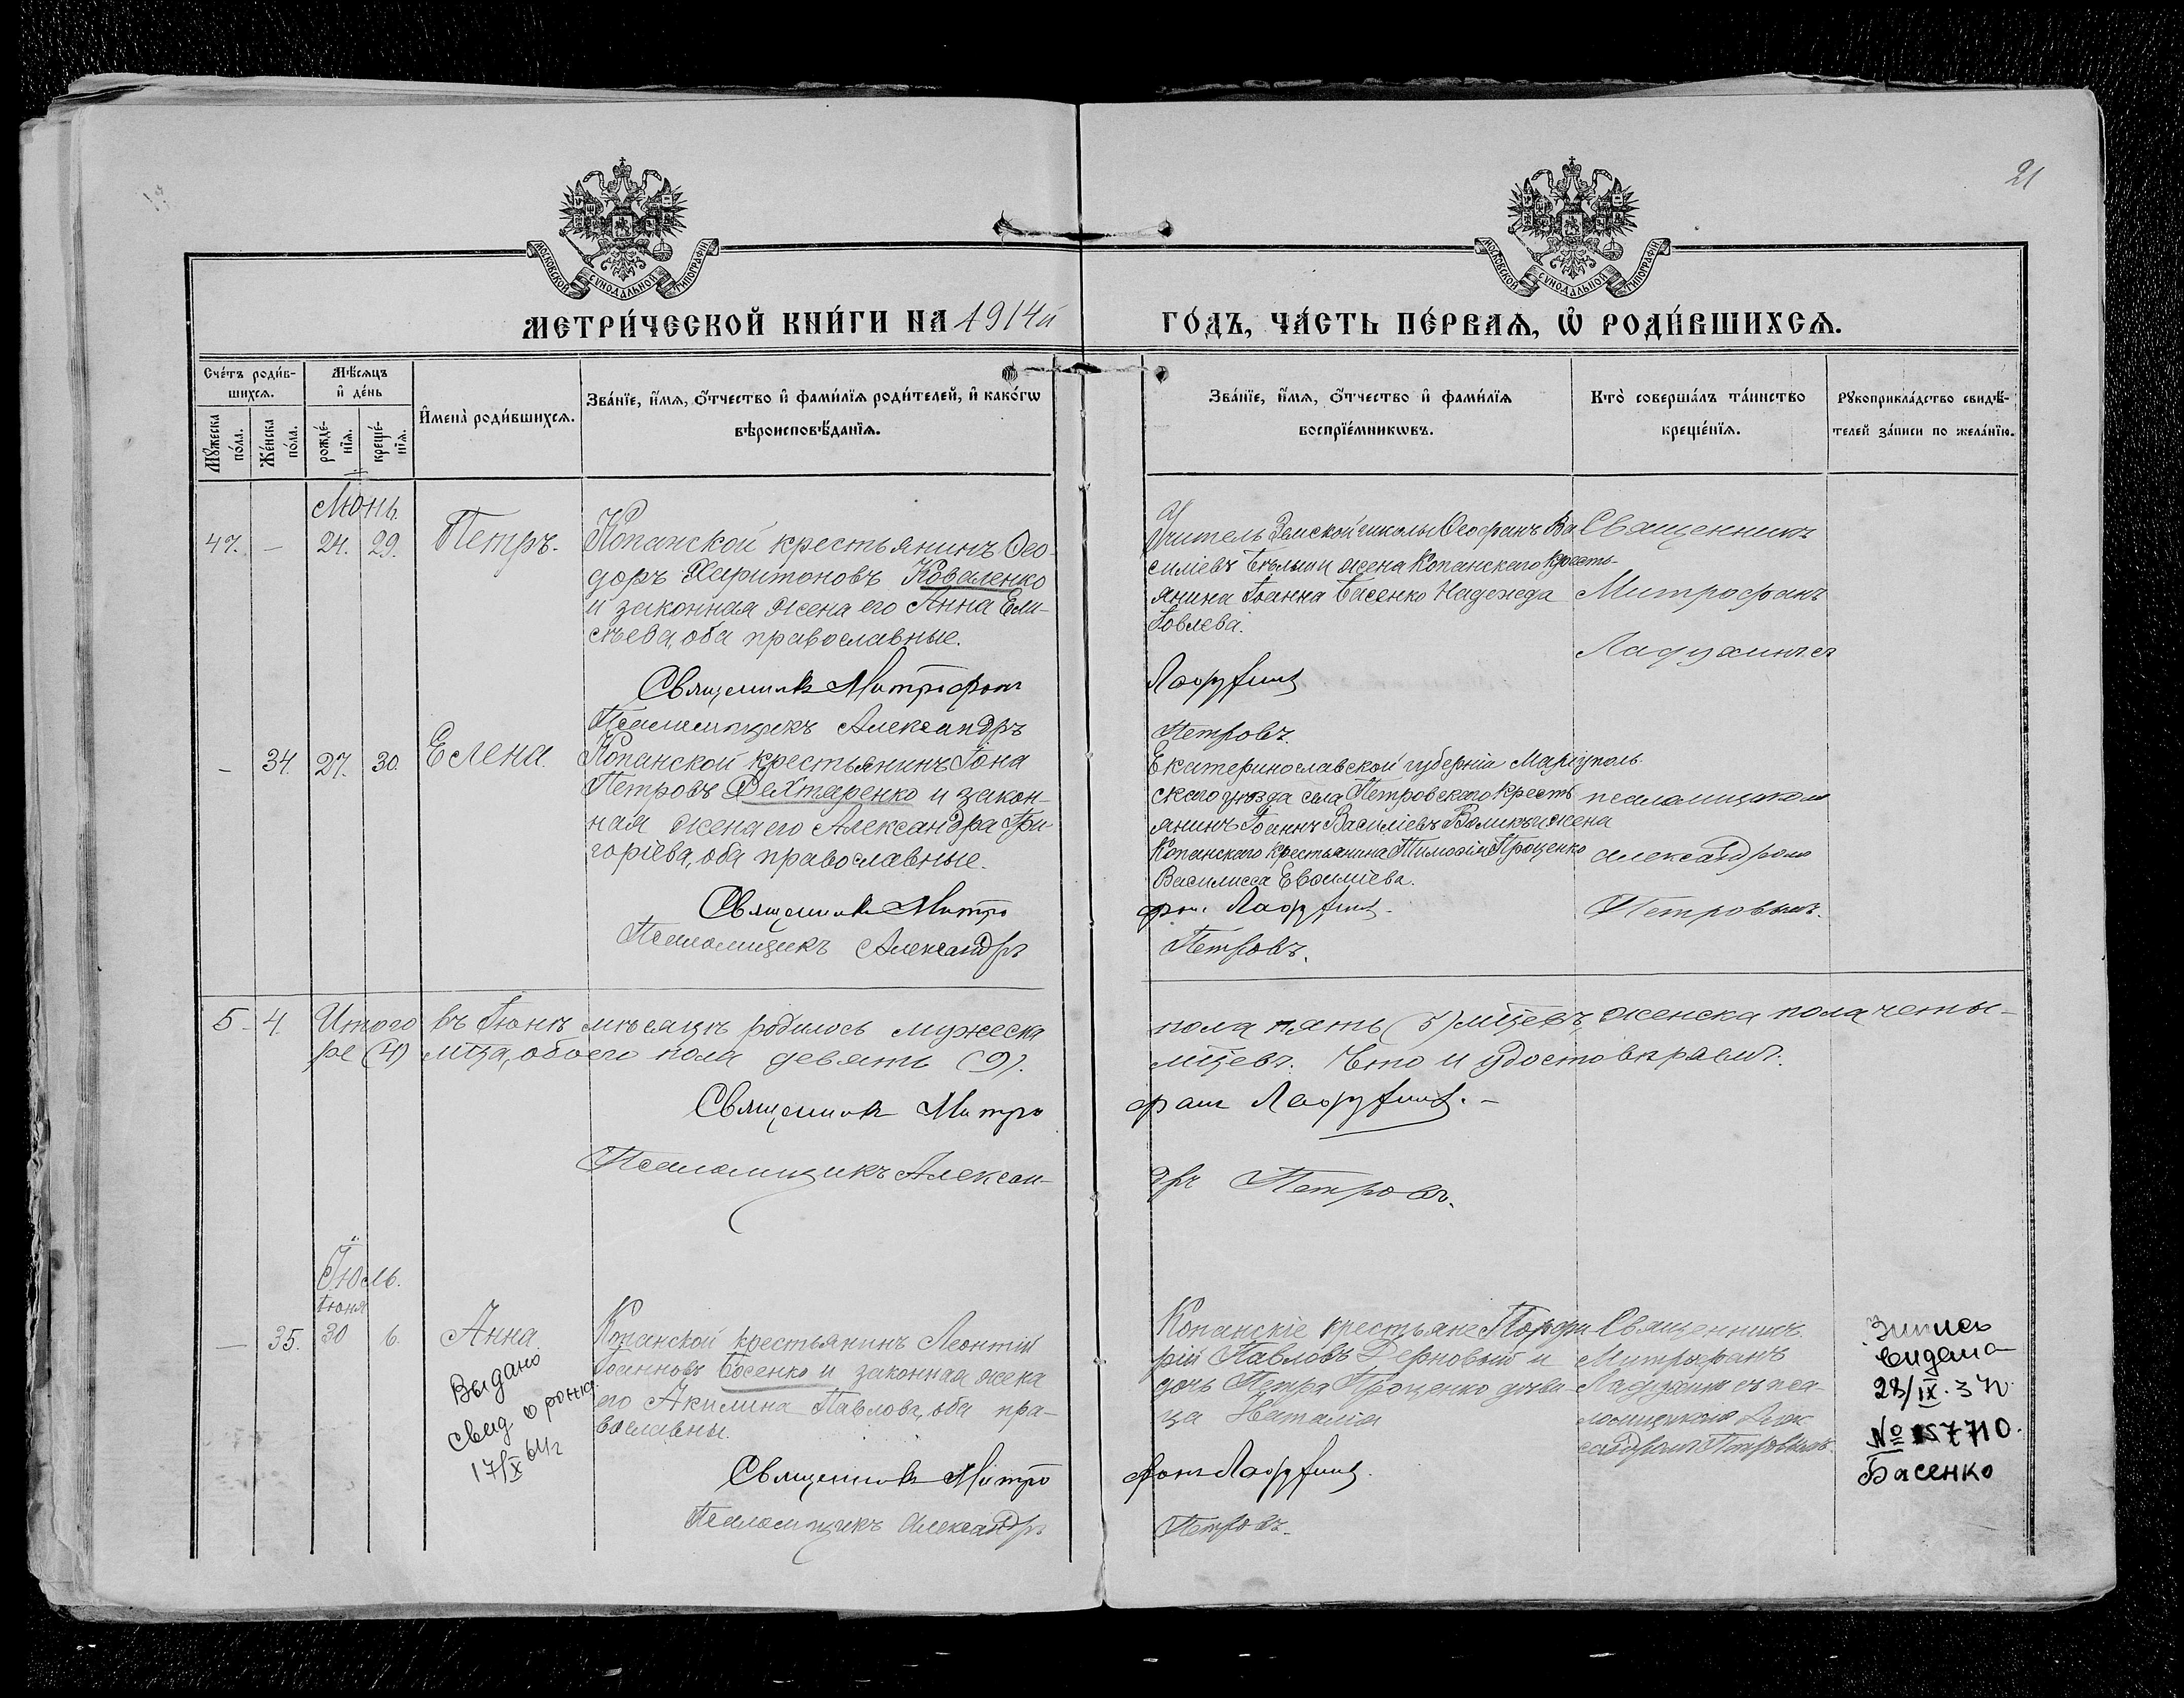 21
МОСКОВСКОЙ СѴНОДАЛЬНОЙ ТИПОГРАФІИ
МОСКОВСКОЙ СѴНОДАЛЬНОЙ ТИПОГРАФІИ
МЕТРИ́ЧЕСКОЙ КНИ́ГИ НА 1914й
ГО́ДЪ, ЧА́СТЬ ПЕ́РВАѦ, Ѡ҆ РОДИ́ВШИХСѦ.
Сче́тъ роди́в-
шихсѧ.
Мѣ́сѧцъ
и҆ де́нь
Мꙋ́жеска
по́ла.
Же́нска
по́ла.
рожде́-
нїѧ.
креще́-
нїѧ.
И҆мена̀ роди́вшихсѧ.
Зва́нїе, и҆́мѧ, ѻ҆́тчество и҆ фами́лїѧ роди́телей, и҆ како́гѡ
вѣроисповѣ́данїѧ.
Зва́нїе, и҆́мѧ, ѻ҆́тчество и҆ фами́лїѧ
воспрїе́мникѡвъ.
Кто̀ соверша́лъ та́инство
креще́нїѧ.
Рꙋкоприкла́дство свидѣ́-
телей за́писи по жела́нїю.
Июнь.
47. — 24. 29. Петръ.
Копанской крестьянинъ Ѳео-
доръ Харитоновъ Коваленко
и законная жена его Анна Ели-
сѣева, оба православные.
Священникъ Митрофанъ
Псаломщикъ Александръ
Учитель Земской школы Ѳеофанъ Ва
силіевъ жена Копанскаго кресть-
янина Іоанна Басенко Надежда
Іовлева.
Ладухинъ
Петровъ.
Священникъ
Митрофанъ
Ладухинъ съ
— 34. 27. 30. Елена.
Копанской крестьянинъ Іона
Петровъ Дехтаренко и закон-
ная жена его Александра Гри-
горіева, оба православные.
Священникъ Митро
Псаломщикъ Александръ
Екатеринославской губерніи Маріуполь-
скаго уѣзда села Петровскаго кресть
янинъ Іоаннъ Василіевъ Воликъ и жена
Копанскаго крестьянина Тимоѳія Проценко
Василисса Евфиміева.
фанъ Ладухинъ.
Петровъ.
псаломщикомъ
Александромъ
Петровымъ.
5 4. Итого въ Іюнѣ мѣсяцѣ родилось мужеска
ре (4) лица, обоего пола девять (9).
пола пять (5) лицевъ женска пола четы-
лицевъ. Что и удостовѣряемъ.
Священникъ Митро
фанъ Ладухинъ.
Псаломщикъ Алексан-
дръ Петровъ.
Іюль.
Іюня
— 35. 30 6. Анна
Выдано
свид о рожд
17/X 64г
Копанской крестьянинъ Леонтій
Іоанновъ Басенко и законная жена
его Акилина Павлова, оба пра-
вославны.
Священникъ Митро
Псаломщикъ Александръ
Копанскіе крестьяне Порфи
рій Павловъ Дерновый и
дочь Петра Проценко дѣви-
ца Наталія
фанъ Ладухинъ.
Петровъ.
Священникъ
Митрофанъ
Ладухинъ съ пса-
ломщикомъ Алек
сандромъ Петровымъ.
Запись
видана
28/IX.
Басенко